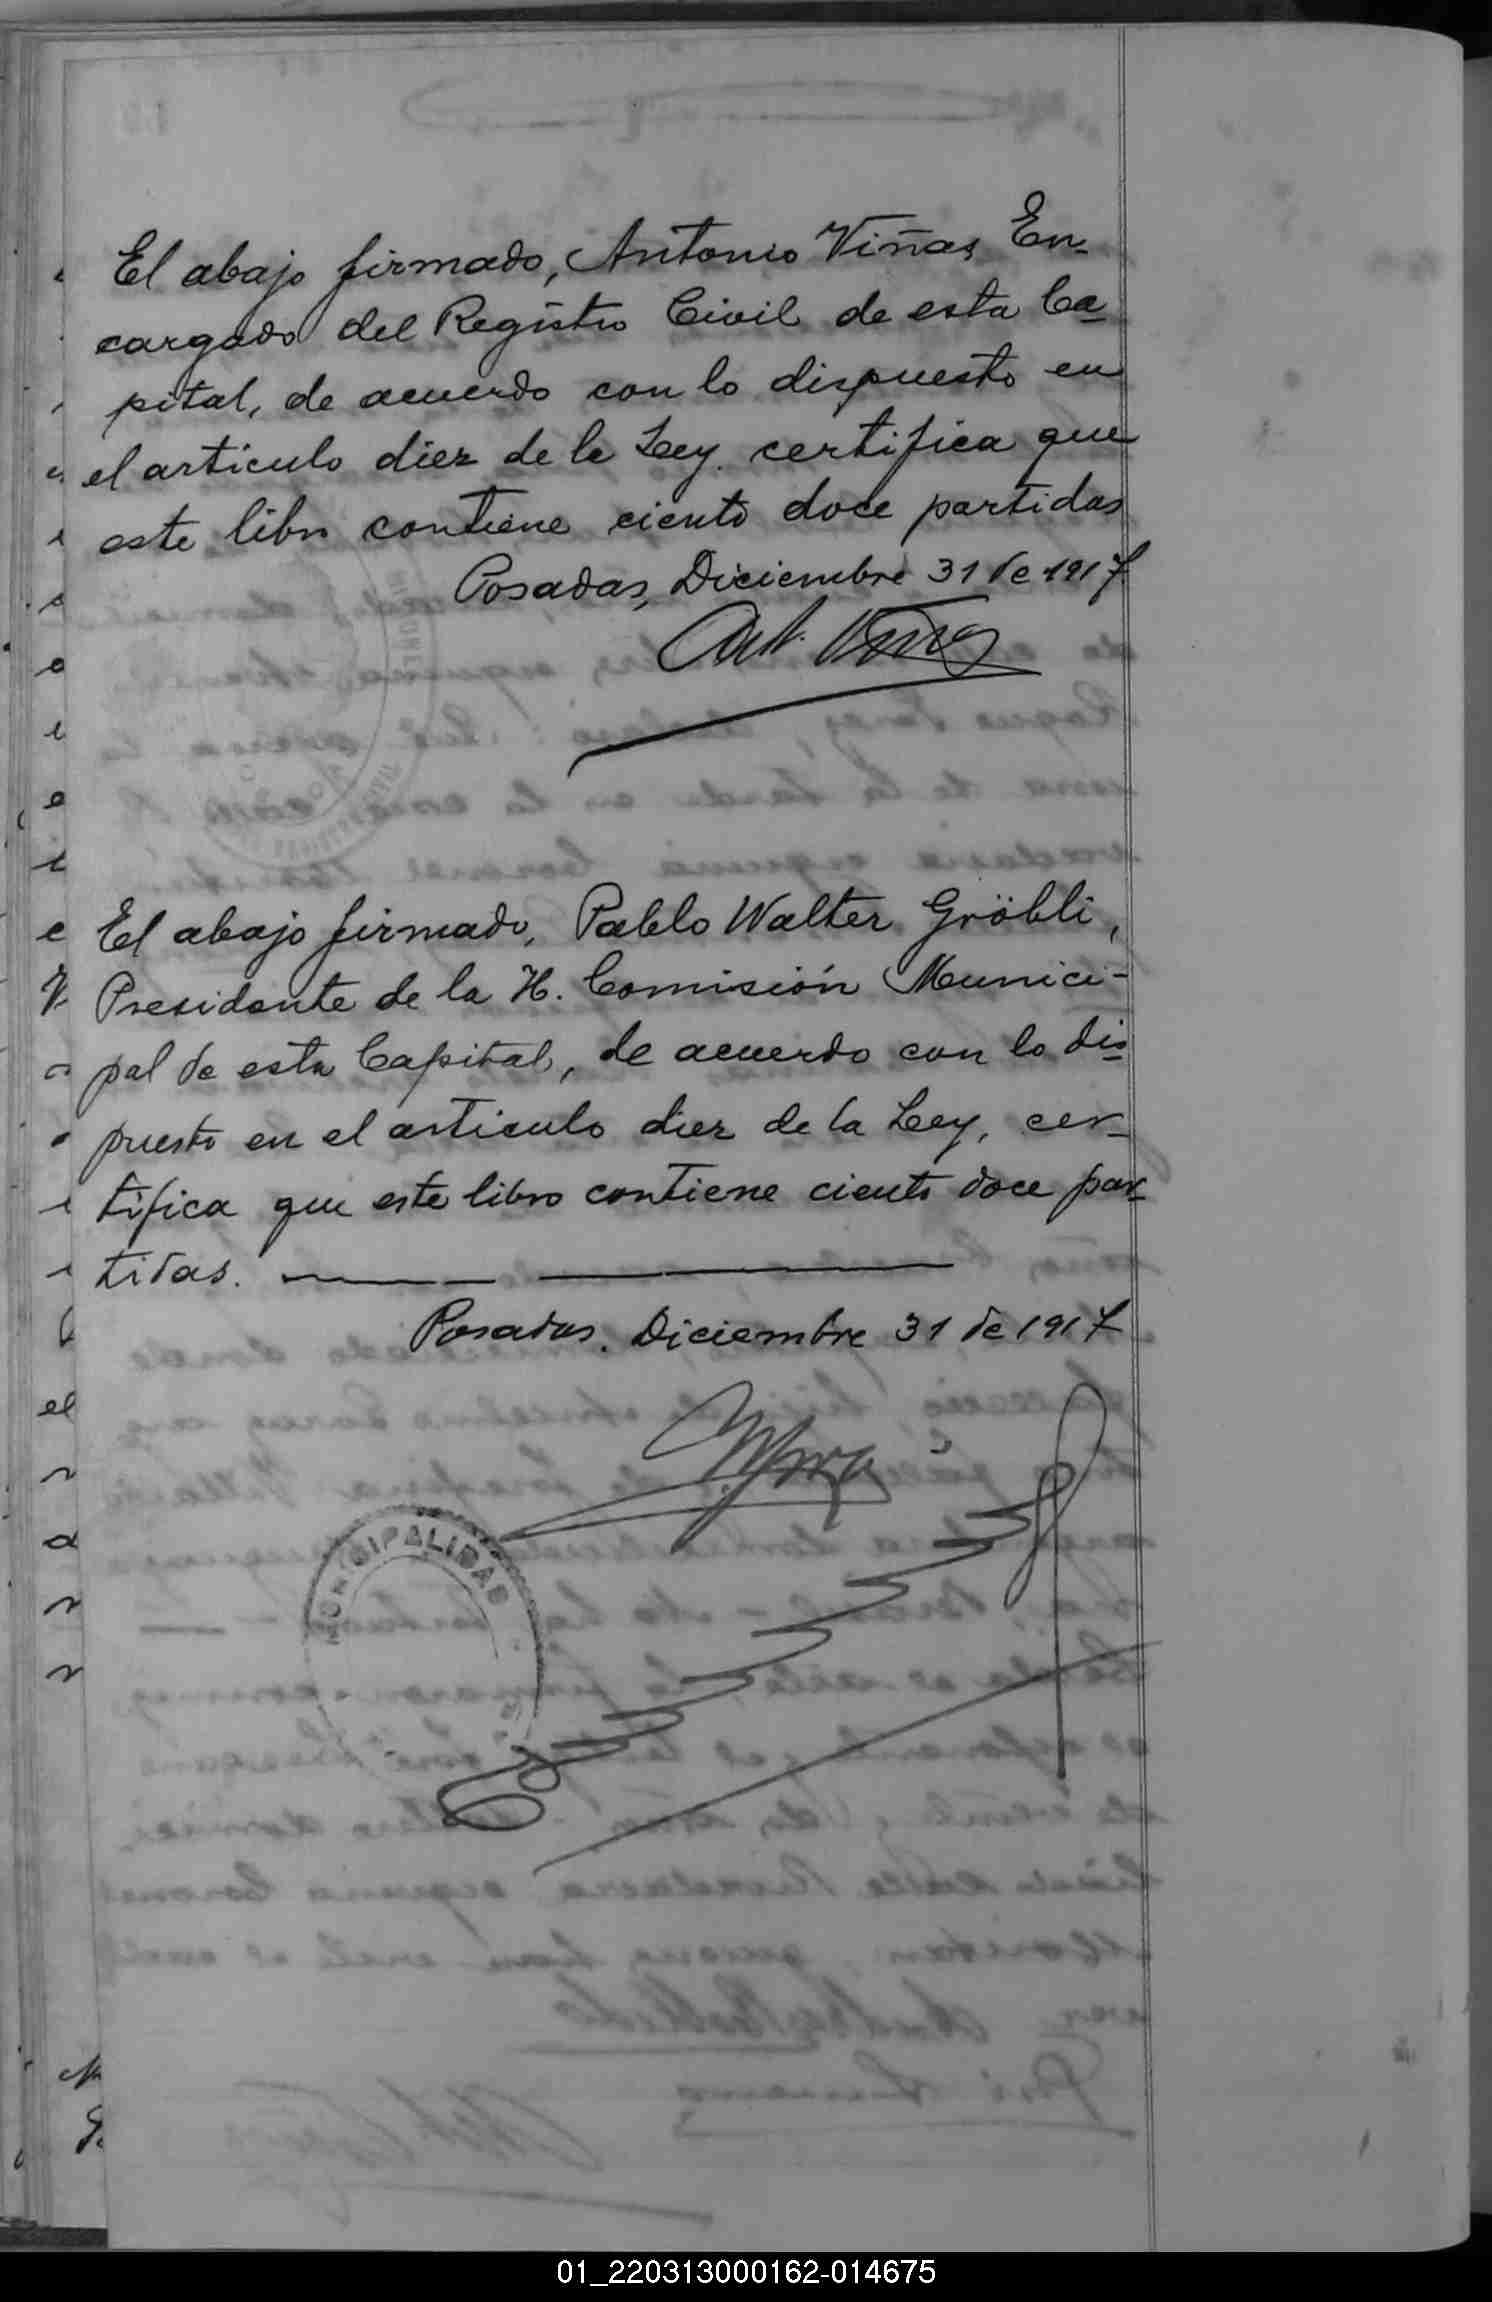 El abajo firmado, Antonio Viñas, En-
cargado del Registro Civil de esta Ca-
pital, de acuerdo con lo dispuesto en
el articulo diez de la Ley. certifica que
este libro contiene ciento doce partidas
Posadas, Diciembre 31 de 1917
Ant. Viñas
El abajo firmado, Pablo Walter Gröbli,
Presidente de la H. Comisión Munici-
pal de esta Capital, de acuerdo con lo dis-
puesto en el articulo diez de la Ley, cer-
tifica que este libro contiene ciento doce par-
tidas.
Posadas, Diciembre 31 de 1917
MUNICIPALIDAD
01_220313000162-014675